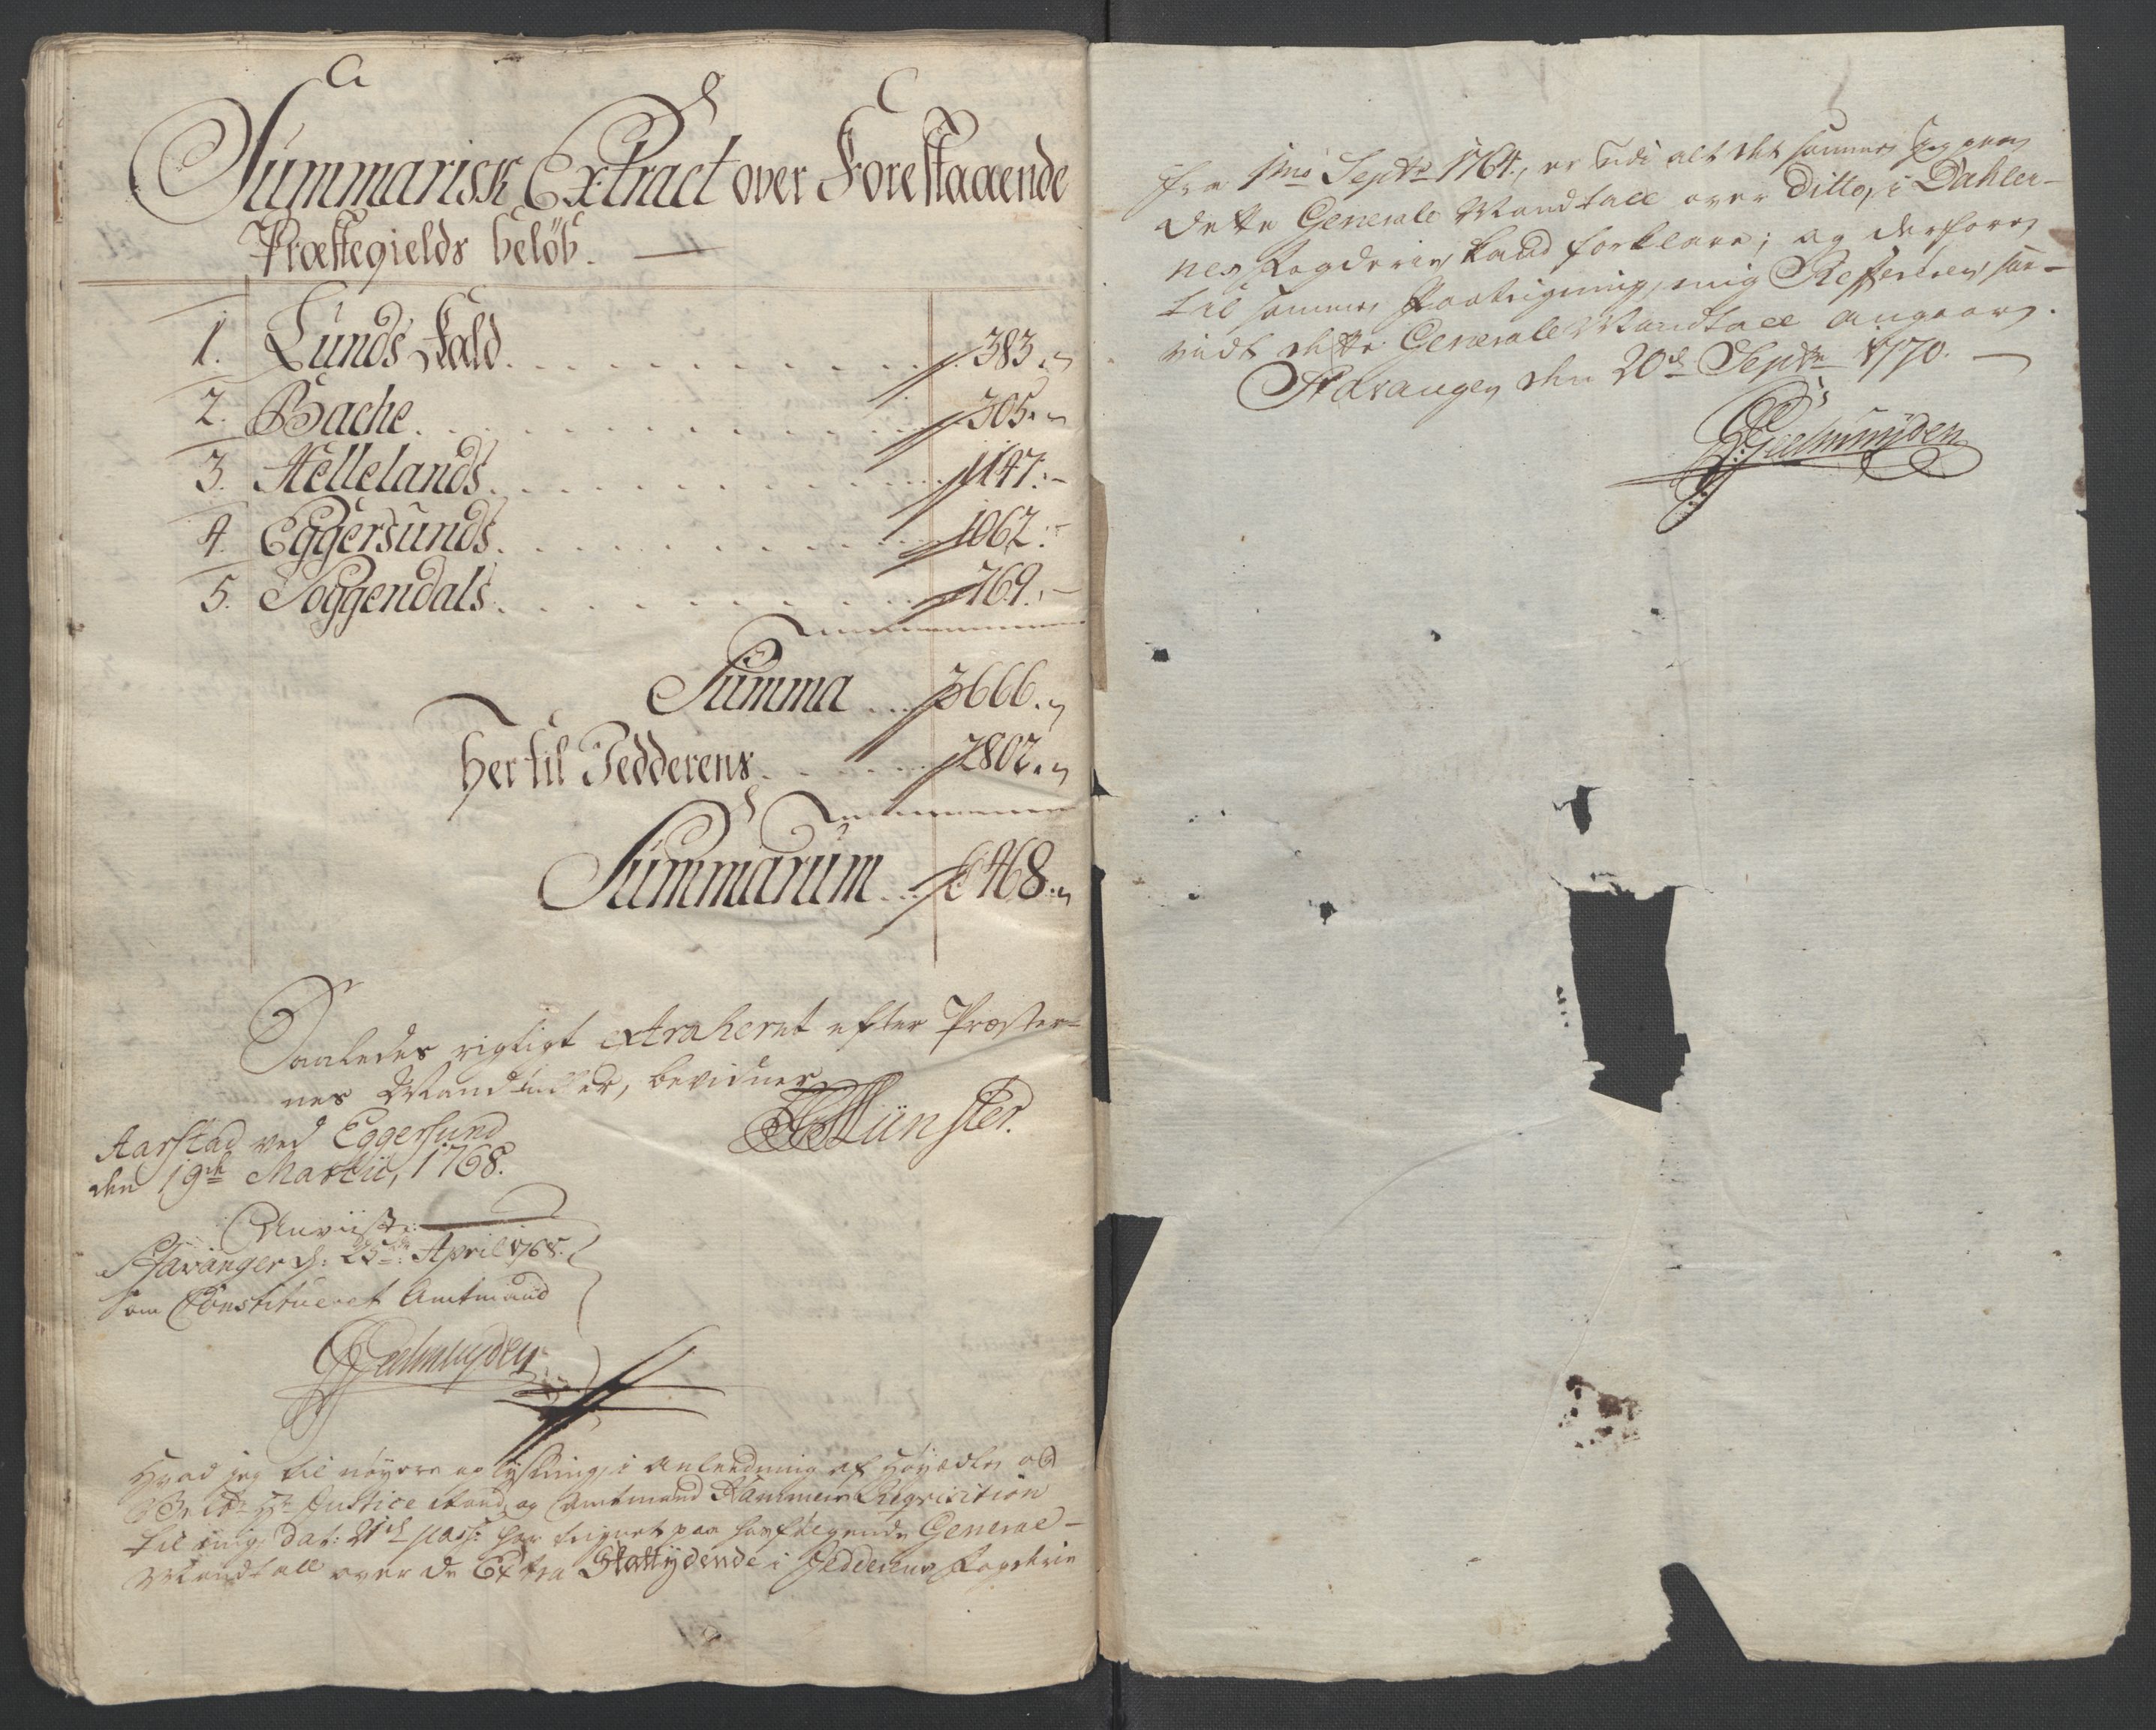 Summarisk Extract over Forestaaende
Præstegields beløb.
1. Lunds Kald 383.
2. Bache 305.
3. Hellelands 1147.
4. Eggersunds 1062.
5. Soggendals 769.
Summa 3666.
Her til Jedderens 2802.
Summarum 6468.
Saaledes rigtigt extraheret efter Præster-
nes Mandtaller, bevidner
Münster.
Aarstad ved Eggersund
den 19de Martii, 1768.
Anviist.
Stavanger d: 25de April 1768.
som Constitueret Amtmand
Geelmuyden
Hvad jeg til nøyere oplysning i anleedning af Høyædle og
Hr Justice Raad og Amtmand Requisition
til mig, dat: 21de pass: har tegnet paa hosfølgende General-
Mandtall over de Extra Skattydende i Jedderens Fogderie
fra 1mo Septr 1764, er udi alt det samme jeg paa
dette Generale Mandtall over ditto, i Dahler-
nes Fogderie kand forklare; og derfore
til samme Paategning mig Refererer, saa-
vidt dette Generale Mandtall angaar.
Stavanger den 20de Septr 1770.
Geelmuyden